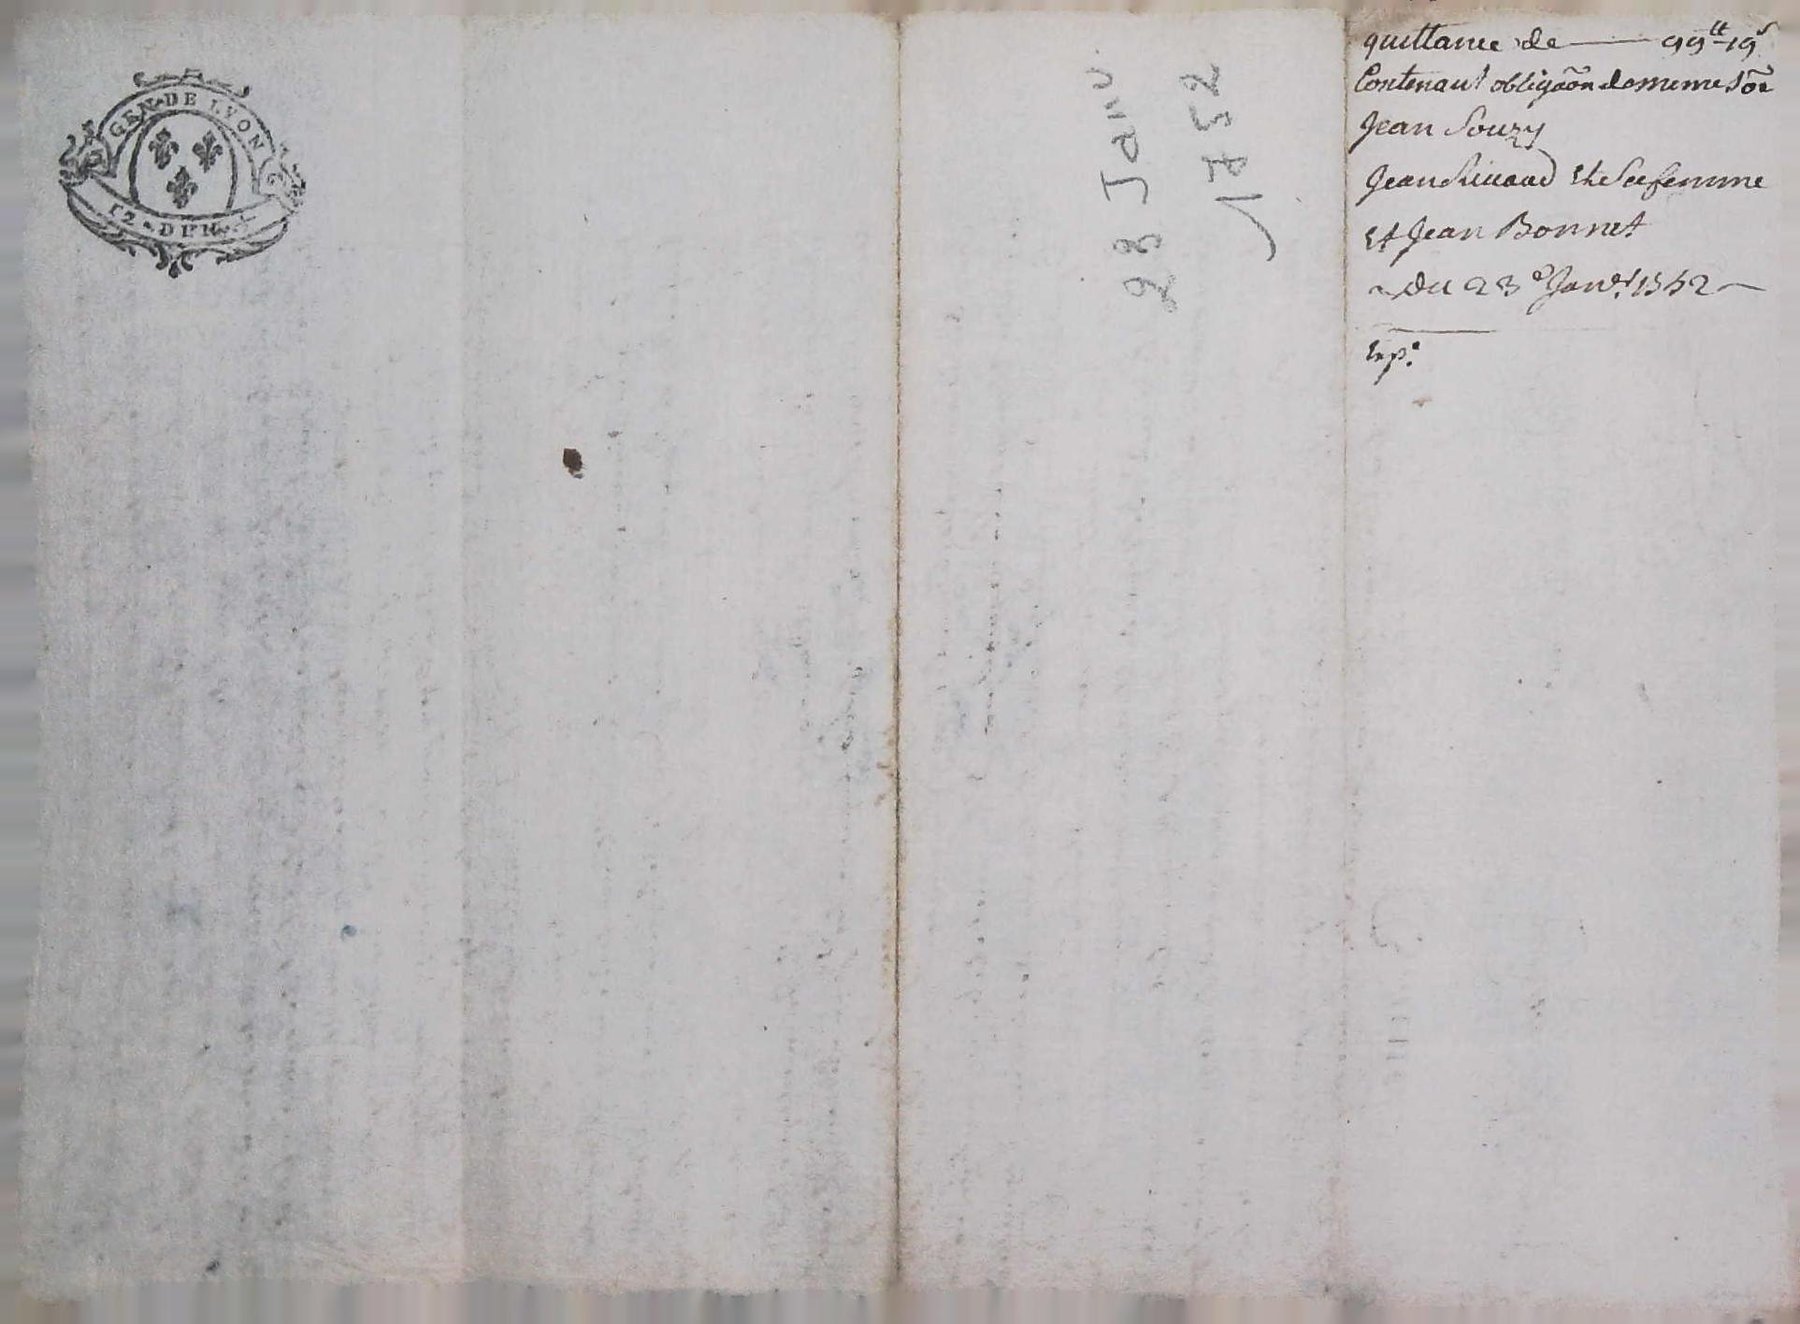 GEN · DE LYON
12 · DEN
23 Janv.
1752
quittance de —— 99tt 19s
Contenant obligãon de meme sõe
Jean Souzy
Jean et Sa femme
Et Jean Bonnet
~ du 23e Janer. 1752 ~
Exp.e